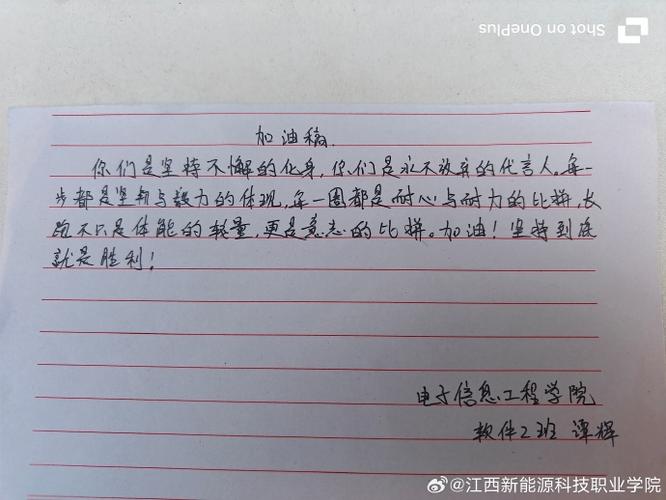 Shot on OnePlus
加油稿.
你们是坚持不懈的化身,你们是永不放弃的代言人。每一
步都是坚韧与毅力的体现,每一圈都是耐心与耐力的比拼,长
跑不只是体能的较量,更是意志的比拼。加油!坚持到底
就是胜利!
电子信息工程学院
软件2班 谭辉
@江西新能源科技职业学院